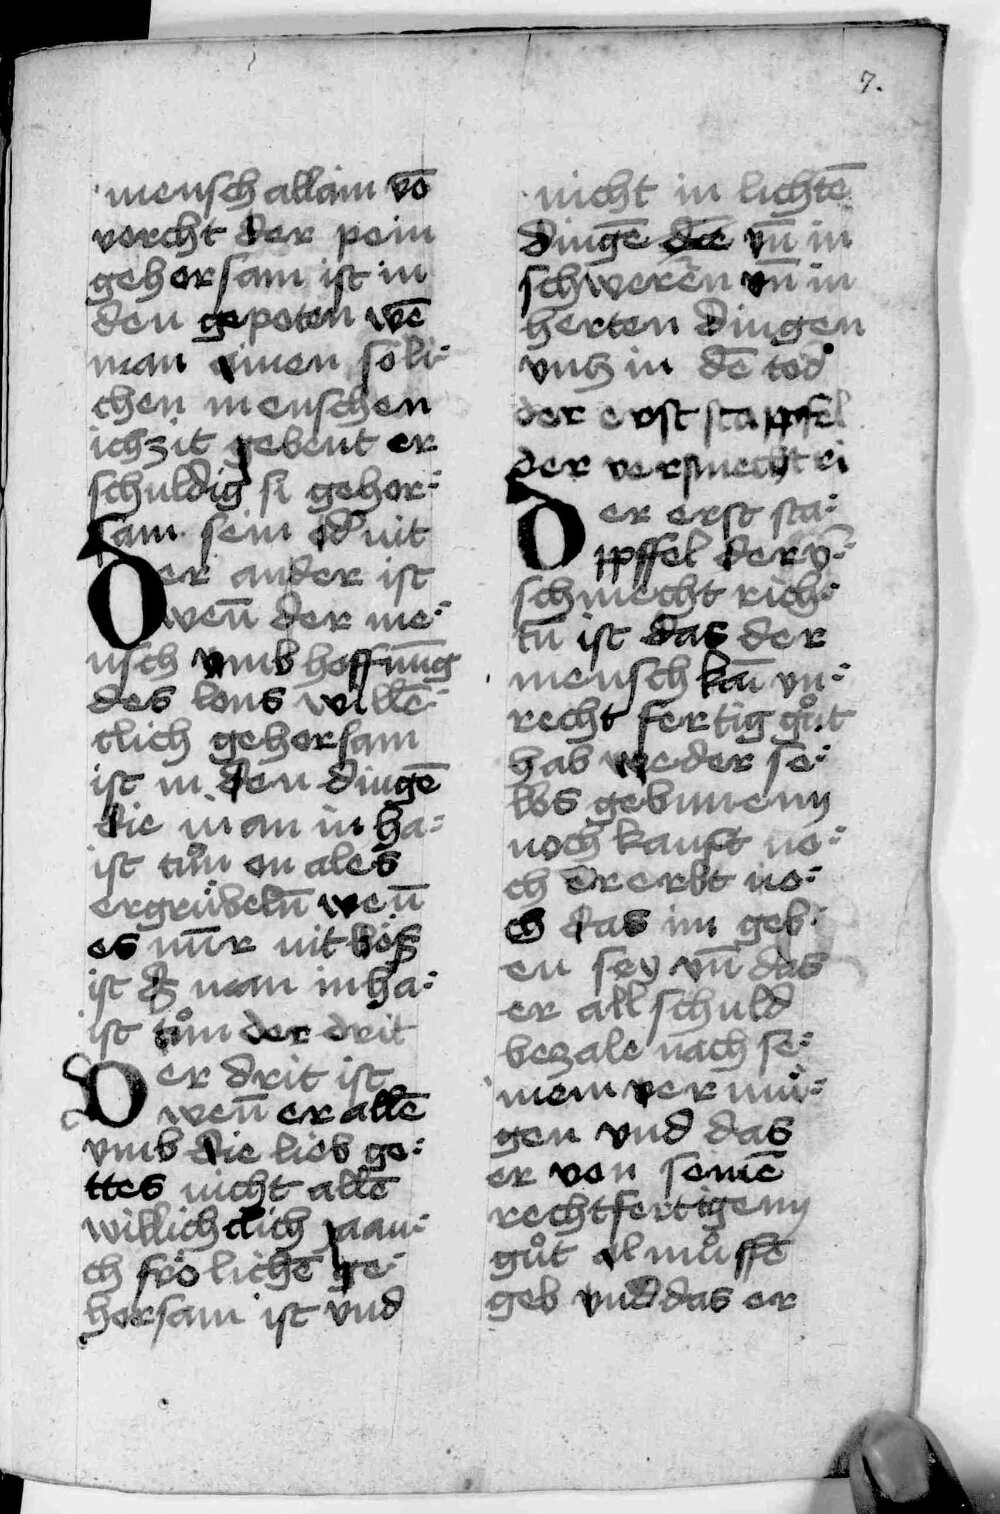 7.
mensch allain vō
vorcht der pein
gehorsam ist in
den gepoten wē
man ainen soli-
chen menschen
ichzit gebeut er
schuldig si gehor-
sam sein od nit
Der ander ist
wen̄ der me-
nsch vmb hoffnūng
des lons wille-
clich gehorsam
ist in den dingē
die man in ha-
ist tůn on ales
ergrübeln̄ wen̄
es nūr nit bös
ist dz man in ha-
ist tůn der drit
Der drit ist
wen̄ er allē
vmb die lieb go-
ttes nicht allē
willichclich
ch frölichē ge-
horsam ist vnd
nicht in lichtē
dingē vn̄ in
schweren vn̄ in
herten dingen
vntz in dē tod
der erst stappfel
der versmecht ri
Der erst sta-
ppffel der v̄-
schmecht rich-
tū ist das der
mensch kan̄ vn-
recht fertig gůt
hab weder se-
lbs gebunenn
noch kauft no-
ch ererbt no-
ch das im geb-
en sey vn̄ das
er all schuld
bezale nach se-
inem vermü-
gen vnd das
er von seinē
rechtfertigenn
gůt almůssē
geb vnd das er